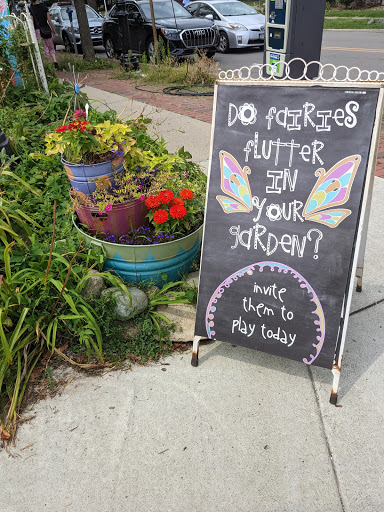 Do fairies
flutter
IN
your
garden?
invite
them to
play today